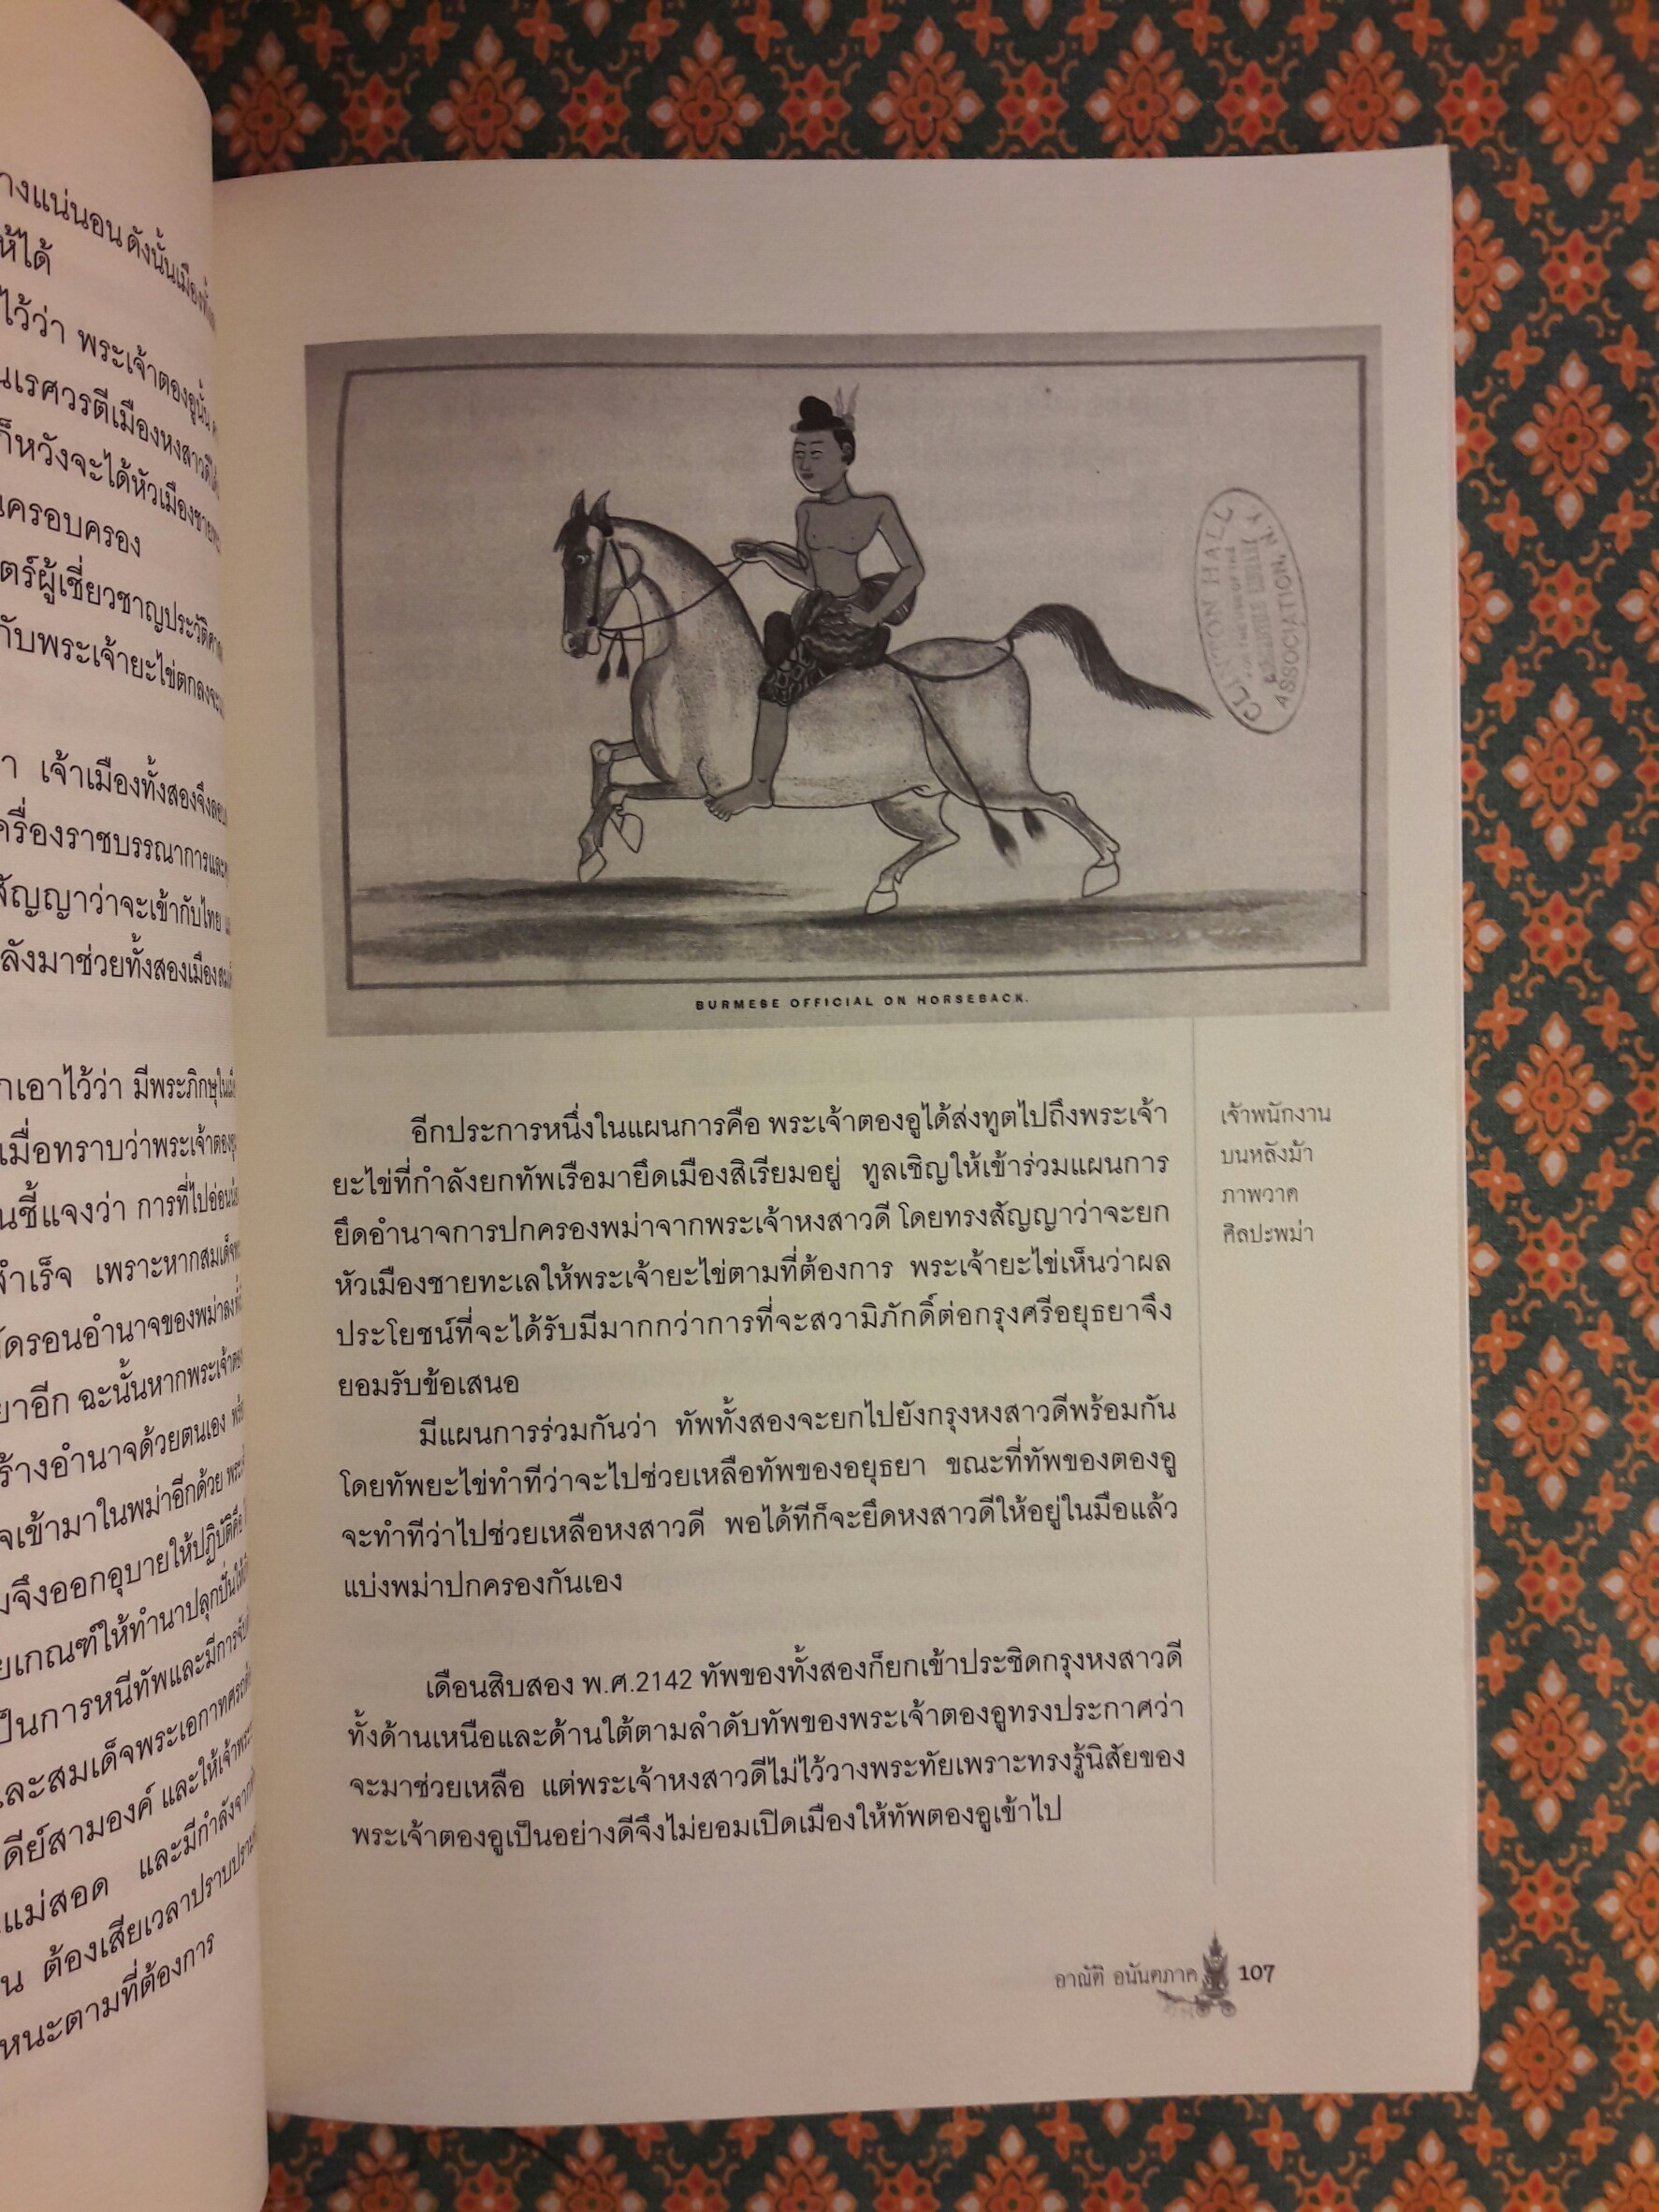 างแน่นอน ดังนั้นเมือง
ห้ได้
ไว้ว่า พระเจ้าตองอูนั้น
นเรศวรตีเมืองหงสาวดี
ก็หวังจะได้หัวเมืองชาย
ครอบครอง
ตร์ผู้เชี่ยวชาญประวัติ
กับพระเจ้ายะไข่ตกลงจะ
า เจ้าเมืองทั้งสองจึง
ครื่องราชบรรณาการและ
สัญญาว่าจะเข้ากับไทย
ลังมาช่วยทั้งสองเมือง
กเอาไว้ว่า มีพระภิกษุใน
เมื่อทราบว่าพระเจ้าตองอู
นชี้แจงว่า การที่ไปอ่อน
สำเร็จ เพราะหากสมเด็จ
ดรอนอำนาจของพม่าลง
ยาอีก ฉะนั้นหากพระเจ้า
ร้างอำนาจด้วยตนเอง
จเข้ามาในพม่าอีกด้วย
จึงออกอุบายให้ปฏิบัติคือ
ยเกณฑ์ให้ทำนาปลุกปั่นให้
ป็นการหนีทัพและมีการ
ละสมเด็จพระเอกาทศรถ
ดีย์สามองค์ และให้เจ้าพระ
แม่สอด และมีกำลังจาก
น ต้องเสียเวลาปราบปราม
หนะตามที่ต้องการ
CLINTON HALL
ASSOCIATION, N.Y.
BURMESE OFFICIAL ON HORSEBACK.
อีกประการหนึ่งในแผนการคือ พระเจ้าตองอูได้ส่งทูตไปถึงพระเจ้า
ยะไข่ที่กำลังยกทัพเรือมายึดเมืองสิเรียมอยู่ ทูลเชิญให้เข้าร่วมแผนการ
ยึดอำนาจการปกครองพม่าจากพระเจ้าหงสาวดี โดยทรงสัญญาว่าจะยก
หัวเมืองชายทะเลให้พระเจ้ายะไข่ตามที่ต้องการ พระเจ้ายะไข่เห็นว่าผล
ประโยชน์ที่จะได้รับมีมากกว่าการที่จะสวามิภักดิ์ต่อกรุงศรีอยุธยาจึง
ยอมรับข้อเสนอ
มีแผนการร่วมกันว่า ทัพทั้งสองจะยกไปยังกรุงหงสาวดีพร้อมกัน
โดยทัพยะไข่ทำทีว่าจะไปช่วยเหลือทัพของอยุธยา ขณะที่ทัพของตองอู
จะทำทีว่าไปช่วยเหลือหงสาวดี พอได้ทีก็จะยึดหงสาวดีให้อยู่ในมือแล้ว
แบ่งพม่าปกครองกันเอง
เดือนสิบสอง พ.ศ.2142 ทัพของทั้งสองก็ยกเข้าประชิดกรุงหงสาวดี
ทั้งด้านเหนือและด้านใต้ตามลำดับทัพของพระเจ้าตองอูทรงประกาศว่า
จะมาช่วยเหลือ แต่พระเจ้าหงสาวดีไม่ไว้วางพระทัยเพราะทรงรู้นิสัยของ
พระเจ้าตองอูเป็นอย่างดีจึงไม่ยอมเปิดเมืองให้ทัพตองอูเข้าไป
เจ้าพนักงาน
บนหลังม้า
ภาพวาด
ศิลปะพม่า
อาณัติ อนันตภาค 107